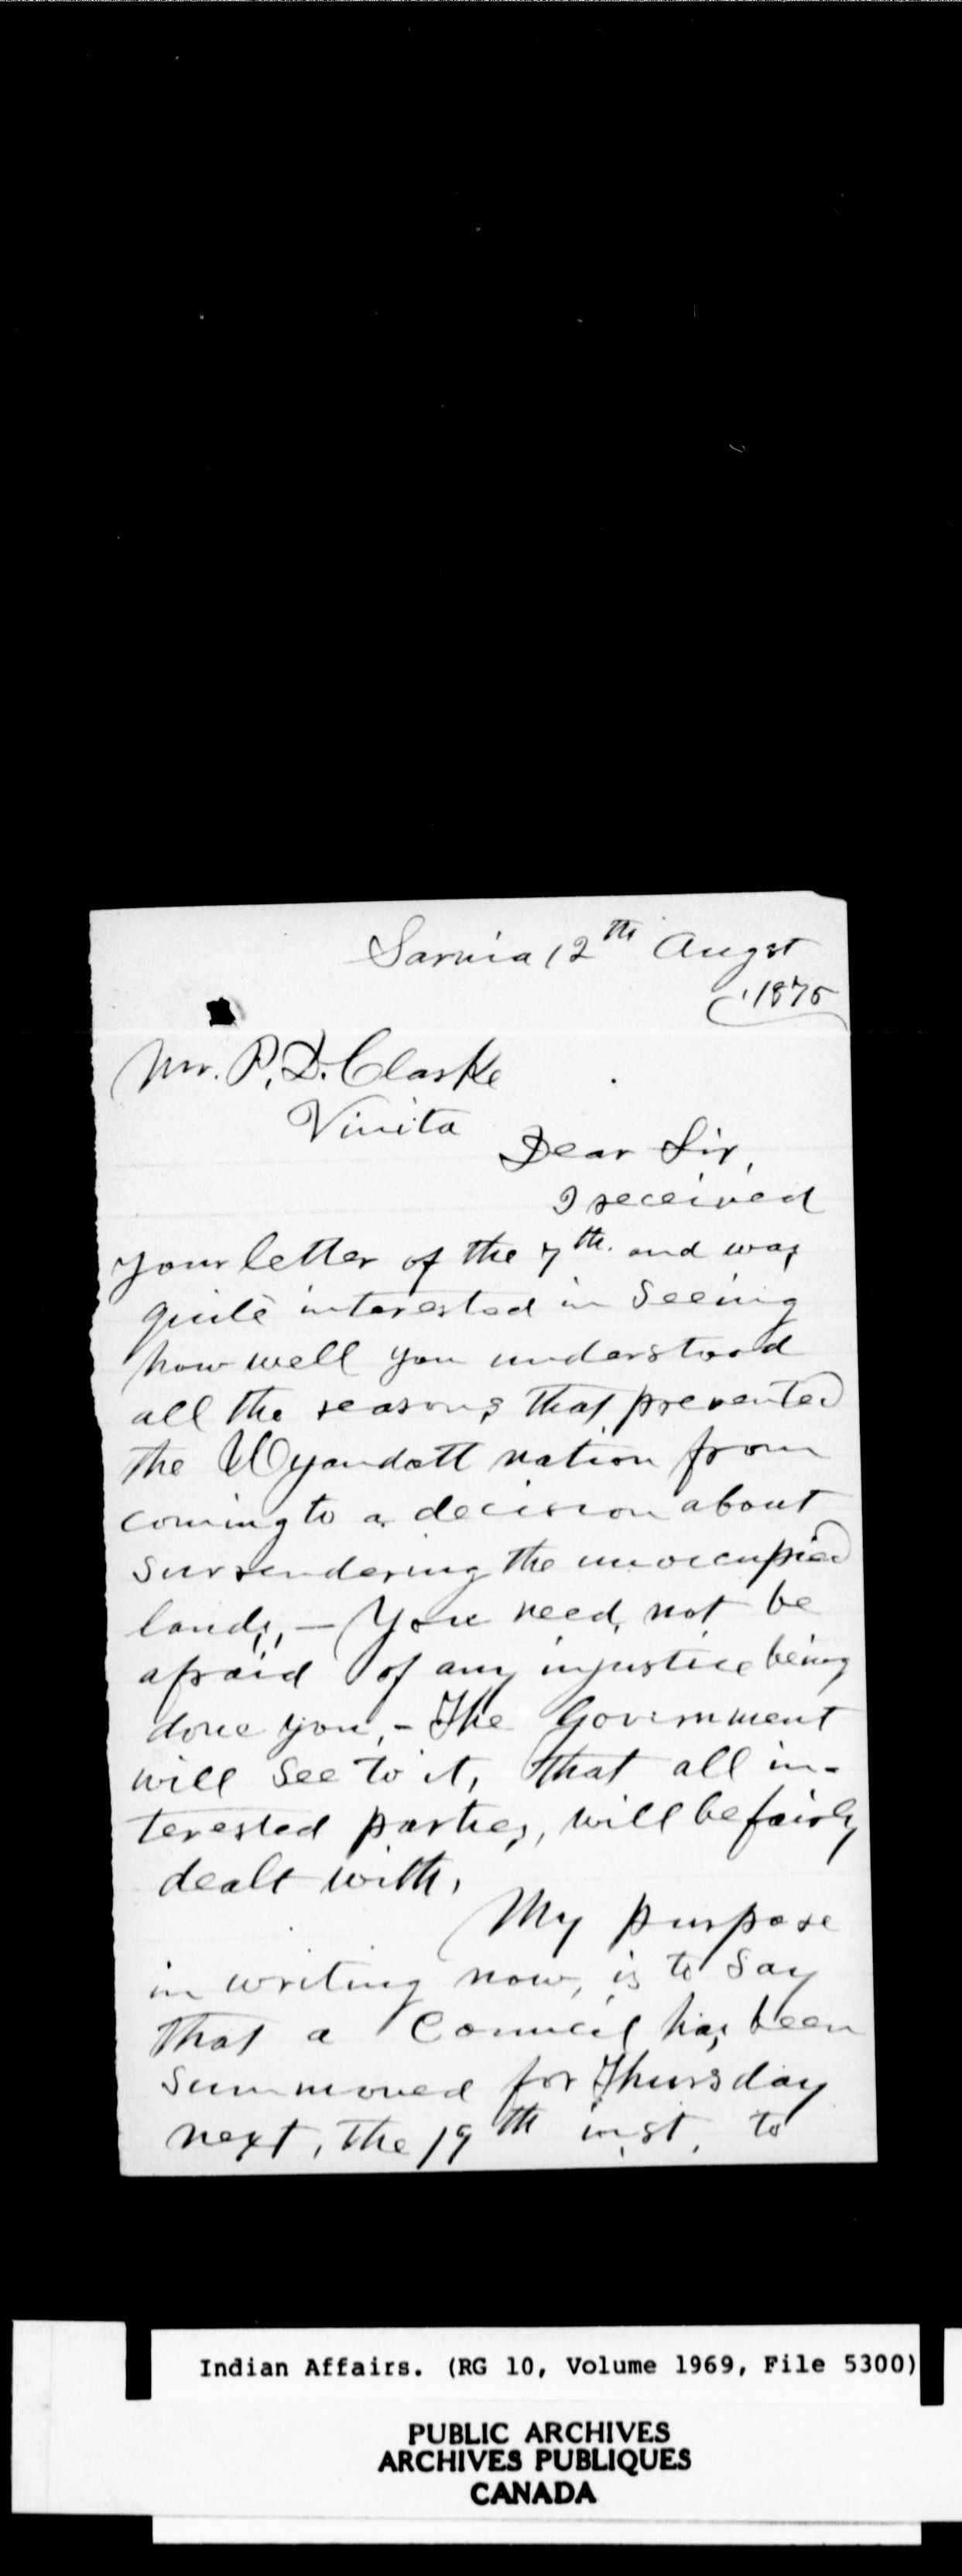 Sarnia 12th Augst
1875
Mr. P. D. Clarke
Vinita
Dear Sir,
I received
your letter of the 7th. and was
quite interested in Seeing
how well you understood
all the reasons that prevented
the Wyandott nation from
coming to a decision about
surrendering the unoccupied
lands, — You need not be
afraid of any injustice being
done you, - The Government
will See to it, that all in-
terested parties, will be fairly
dealt with,
My purpose
in writing now, is to Say
that a Council has been
summoned for Thursday
next, the 19th inst, to
Indian Affairs. (RG 10, Volume 1969, File 5300)
PUBLIC ARCHIVES
ARCHIVES PUBLIQUES
CANADA